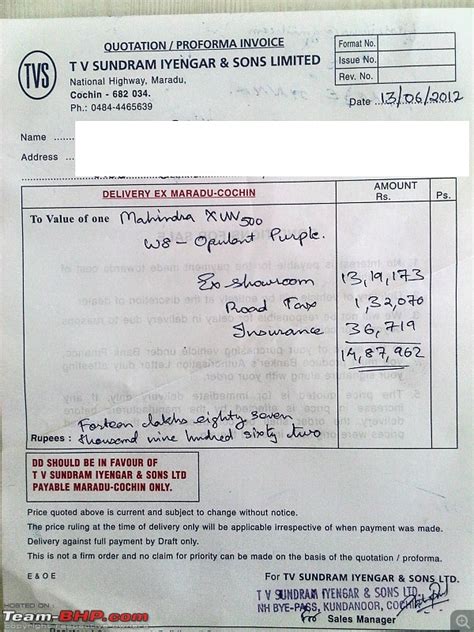 QUOTATION / PROFORMA INVOICE
TVS
T V SUNDRAM IYENGAR & SONS LIMITED
National Highway, Maradu,
Cochin - 682 034.
Ph.: 0484-4465639
Format No.
Issue No.
Rev. No.
Date 13/06/2012
Name
Address
DELIVERY EX MARADU-COCHIN
AMOUNT
Rs.
Ps.
To Value of one Mahindra XUV 500
W8 - Opulant Purple.
Ex-showroom 13,19,173
Road Tax 1,32,070
Insurance 36,719
14,87,962
Forteen lakhs eighty seven
Rupees : thousand nine hundred sixty two
DD SHOULD BE IN FAVOUR OF
T V SUNDRAM IYENGAR & SONS LTD
PAYABLE MARADU-COCHIN ONLY.
Price quoted above is current and subject to change without notice.
The price ruling at the time of delivery only will be applicable irrespective of when payment was made.
Delivery against full payment by Draft only.
This is not a firm order and no claim for priority can be made on the basis of the quotation / proforma.
E & O E
For T V SUNDRAM IYENGAR & SONS LTD.
T V SUNDRAM IYENGAR & SONS LTD.
NH BYE-PASS, KUNDANOOR, COCHIN
Sales Manager
HOSTED ON :
Team-BHP.com